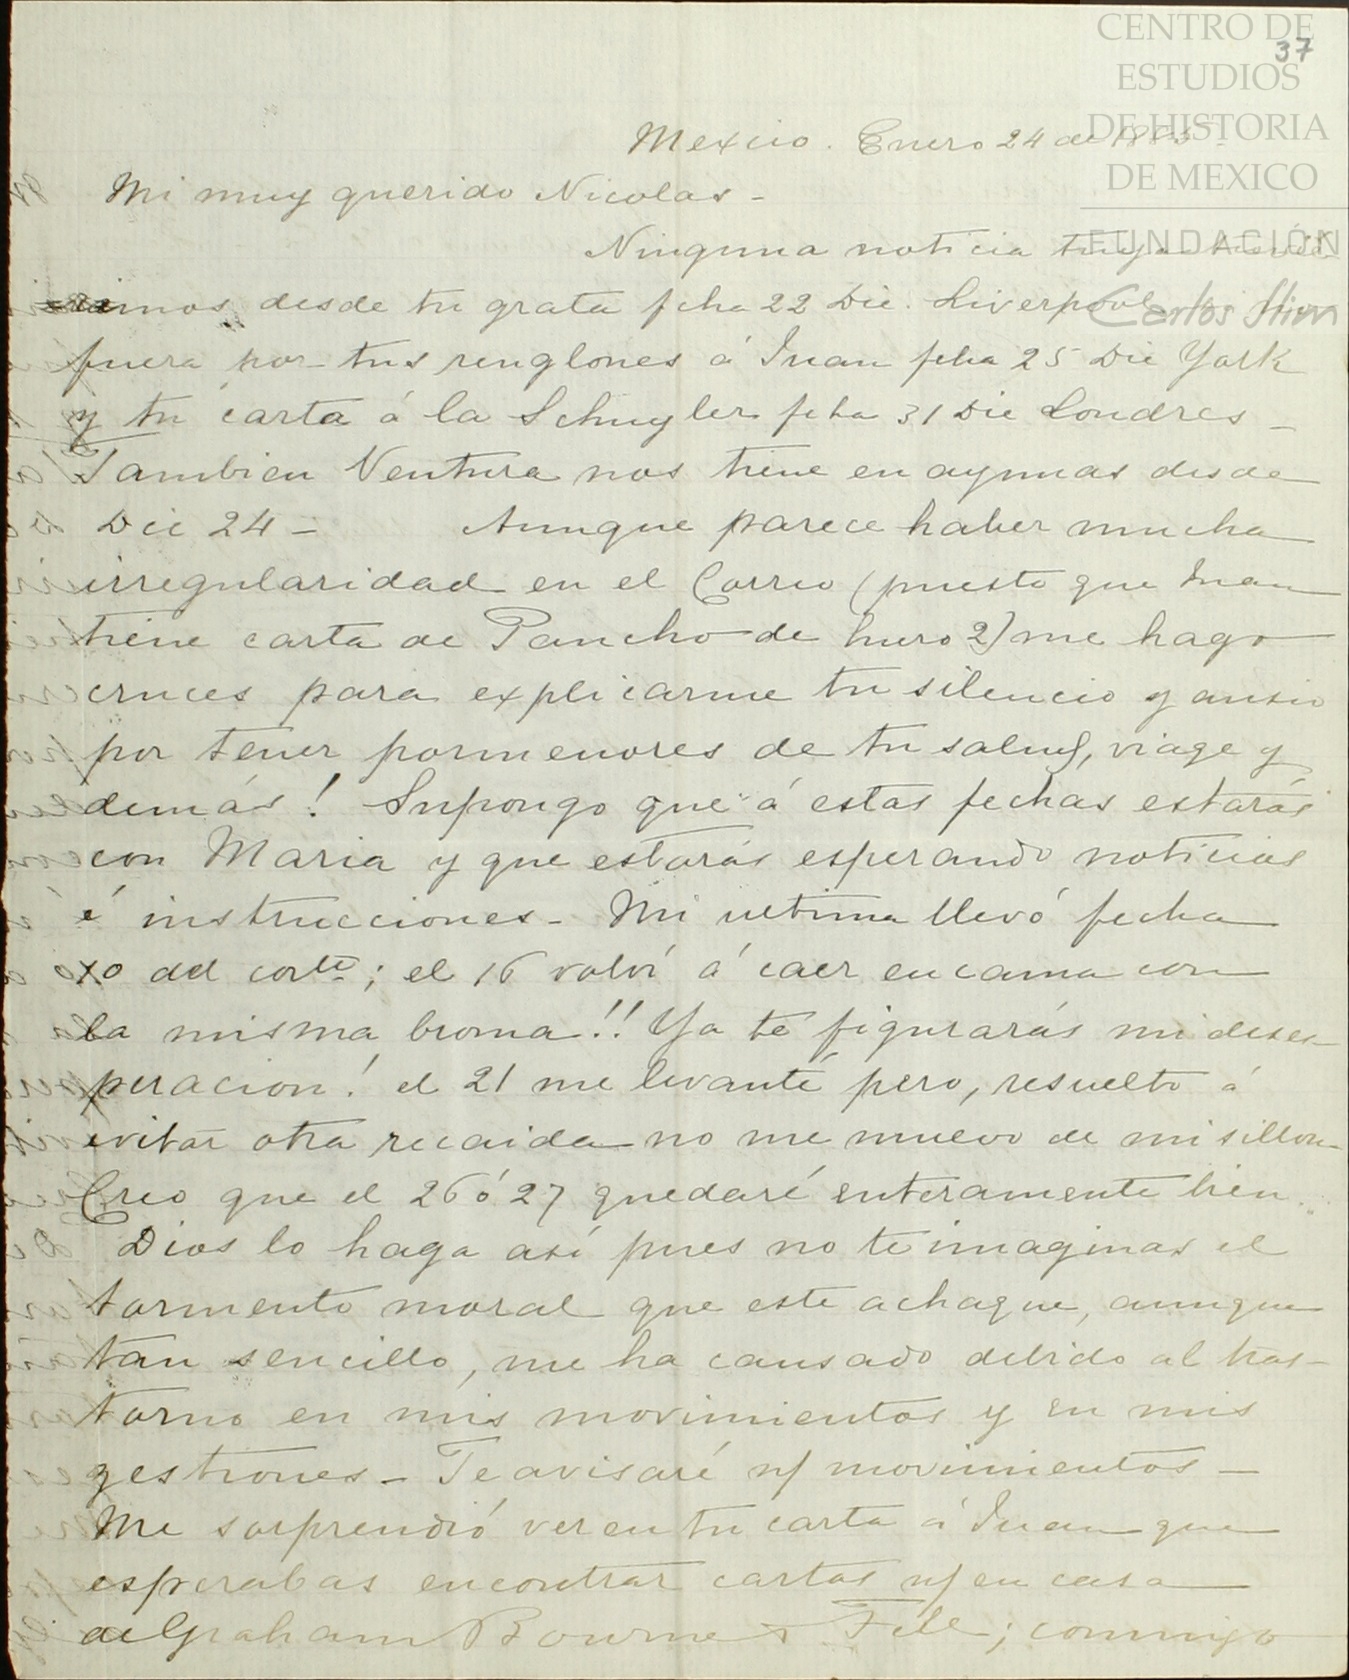 CENTRO DE
ESTUDIOS
DE HISTORIA
DE MEXICO
FUNDACIÓN
Carlos Slim
37
Mexico. Enero 24 de
Mi muy querido Nicolas -
Ninguna noticia tuya
desde tu grata fcha 22 Dic. Liverpool
fuera por tus renglones á Juan fcha 25 Dic York
y tu carta á la Schuyler fcha 31 Dic Londres -
Tambien Ventura nos tiene en ayunas desde
Dic 24 - Aunque parece haber mucha
irregularidad en el Correo (puesto que Juan
tiene carta de Pancho de Enero 2) me hago
cruces para explicarme tu silencio y ansio
por tener pormenores de tu salud, viage y
demás! Supongo que á estas fechas estarás
con Maria y que estarás esperando noticias
é instrucciones - Mi ultima llevó fecha
10 del corte; el 16 volví á caer en cama con
la misma broma!! Ya te figurarás mi deses-
peracion! el 21 me levanté pero, resuelto á
evitar otra recaida no me muevo de mi sillon
Creo que el 26 ó 27 quedaré enteramente bien.
Dios lo haga así pues no te imaginas el
tormento moral que este achaque, aunque
tan sencillo, me ha causado debido al tras-
torno en mis movimientos y en mis
gestiones - Te avisaré n/ movimientos -
Me sorprendió ver en tu carta á Juan que
esperabas encontrar cartas n/ en casa
de Graham Bowne & ; conmigo